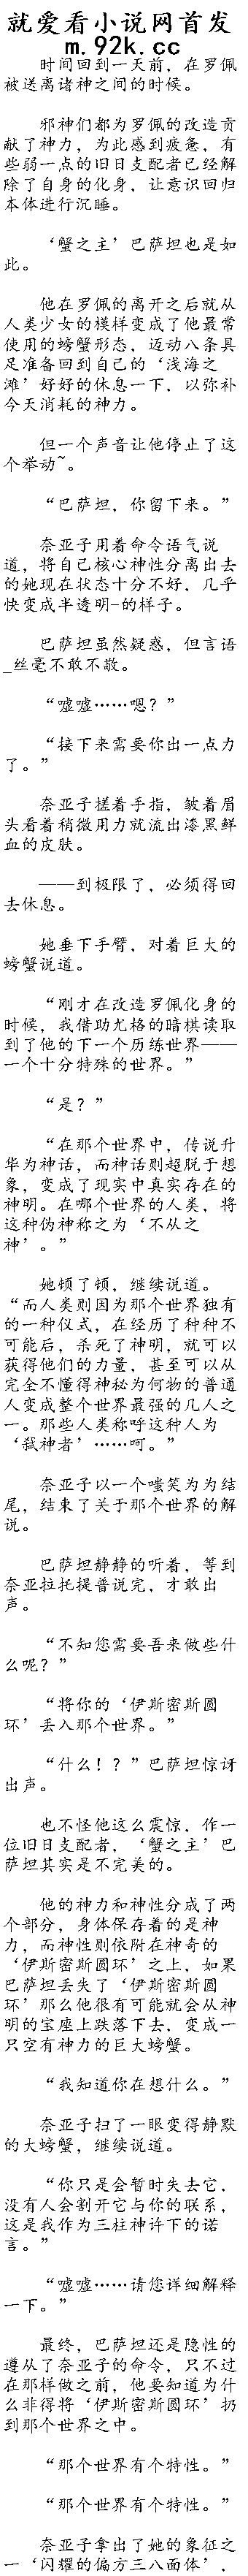 就爱看小说网首发
m.92k.cc
时间回到一天前，在罗佩
被送离诸神之间的时候。
邪神们都为罗佩的改造贡
献了神力，为此感到疲惫，有
些弱一点的旧日支配者已经解
除了自身的化身，让意识回归
本体进行沉睡。
‘蟹之主’巴萨坦也是如
此。
他在罗佩的离开之后就从
人类少女的模样变成了他最常
使用的螃蟹形态，迈动八条具
足准备回到自己的‘浅海之
滩’好好的休息一下，以弥补
今天消耗的神力。
但一个声音让他停止了这
个举动~。
“巴萨坦，你留下来。”
奈亚子用着命令语气说
道，将自己核心神性分离出去
的她现在状态十分不好，几乎
快变成半透明-的样子。
巴萨坦虽然疑惑，但言语
_丝毫不敢不敬。
“嘘嘘……嗯？”
“接下来需要你出一点力
了。”
奈亚子搓着手指，皱着眉
头看着稍微用力就流出漆黑鲜
血的皮肤。
——到极限了，必须得回
去休息。
她垂下手臂，对着巨大的
螃蟹说道。
“刚才在改造罗佩化身的
时候，我借助尤格的暗棋读取
到了他的下一个历练世界——
一个十分特殊的世界。”
“是？”
“在那个世界中，传说升
华为神话，而神话则超脱于想
象，变成了现实中真实存在的
神明。在哪个世界的人类，将
这种伪神称之为‘不从之
神’。”
她顿了顿，继续说道。
“而人类则因为那个世界独有
的一种仪式，在经历了种种不
可能后，杀死了神明，就可以
获得他们的力量，甚至可以从
完全不懂得神秘为何物的普通
人变成整个世界最强的几人之
一。那些人类称呼这种人为
‘弑神者’……呵。”
奈亚子以一个嗤笑为为结
尾，结束了关于那个世界的解
说。
巴萨坦静静的听着，等到
奈亚拉托提普说完，才敢出
声。
“不知您需要吾来做些什
么呢？”
“将你的‘伊斯密斯圆
环’丢入那个世界。”
“什么！？”巴萨坦惊讶
出声。
也不怪他这么震惊，作一
位旧日支配者，‘蟹之主’巴
萨坦其实是不完美的。
他的神力和神性分成了两
个部分，身体保存着的是神
力，而神性则依附在神奇的
‘伊斯密斯圆环’之上，如果
巴萨坦丢失了‘伊斯密斯圆
环’那么他很有可能就会从神
明的宝座上跌落下去，变成一
只空有神力的巨大螃蟹。
“我知道你在想什么。”
奈亚子扫了一眼变得静默
的大螃蟹，继续说道。
“你只是会暂时失去它，
没有人会割开它与你的联系，
这是我作为三柱神许下的诺
言。”
“嘘嘘……请您详细解释
一下。”
最终，巴萨坦还是隐性的
遵从了奈亚子的命令，只不过
在那样做之前，他要知道为什
么非得将‘伊斯密斯圆环’扔
到那个世界之中。
“那个世界有个特性。”
“那个世界有个特性。”
奈亚子拿出了她的象征之
一‘闪耀的偏方三八面体’，